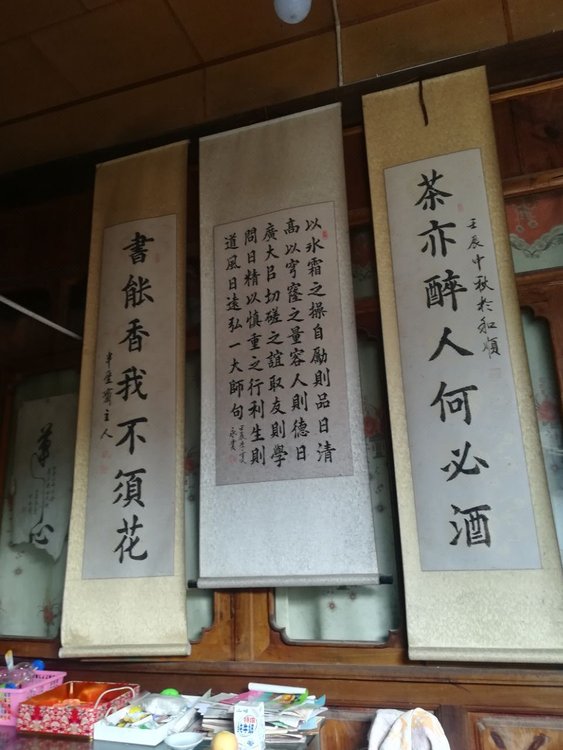 茶亦醉人何必酒
壬辰中秋於和順
以氷霜之操自勵則品日清
高以穹窿之量容人則德日
廣大吕切磋之誼取友則學
問日精以慎重之行利生則
道風日遠弘一大師句
書能香我不須花
齋主人
心